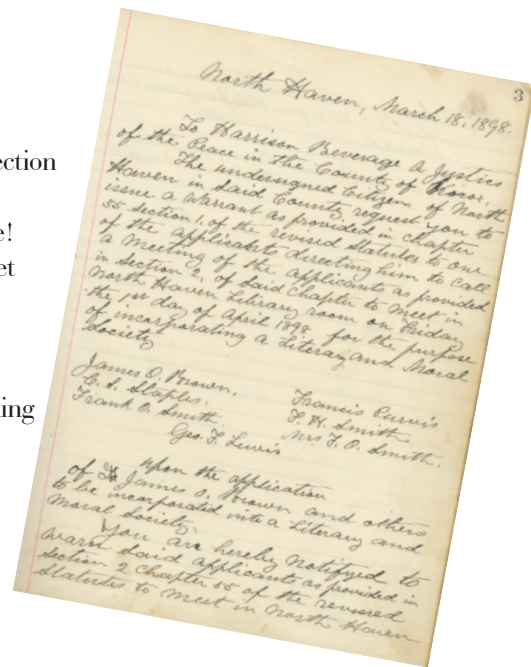 ection
e!
et
ing
3
North Haven, March 18, 1898.
To Harrison Beverage A Justice
of the Peace in the County of Knox,
The undersigned Citizens of North
Haven in said County, request you to
issue a Warrant as provided in Chapter
55 Section 1, of the revised Statutes to one
of the applicants directing him to call
a Meeting of the applicants as provided
in Section 2, of said Chapter to meet in
North Haven Literary room on Friday
the 1st day of April 1898 for the purpose
of incorporating a Literary and Moral
Society
James O. Brown,
C. S. Staples.
Frank O. Smith.
Francis Purvis
F. H. Smith.
Mrs F. O. Smith.
Geo. F. Lewis
upon the application
of James O. Brown and others
to be incorporated into a Literary and
Moral Society.
You are hereby notifyed to
warn said applicants as provided in
Section 2 Chapter 55 of the revised
Statutes to meet in North Haven